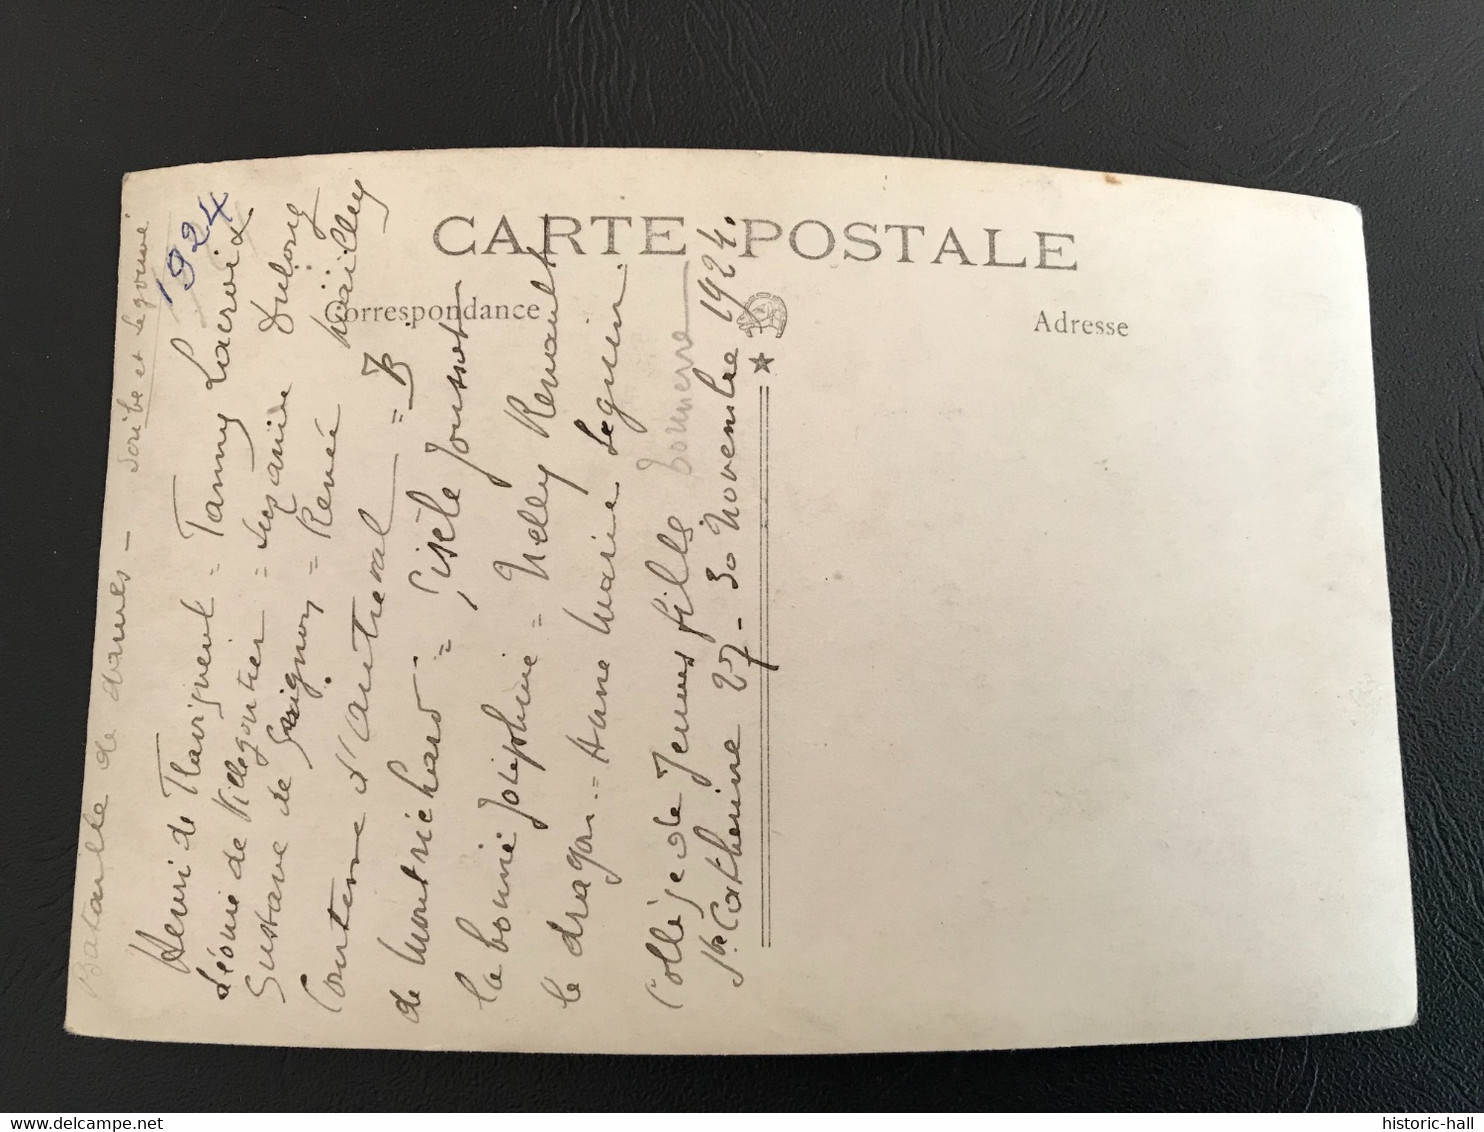 CARTE POSTALE
Correspondance
Adresse
1924
Bataille de dames - Scribe et Legouvé
Henri de Flavigneul = Fanny Lacroix
Léonie de Villegontier = Suzanne Dulong
Gustave de Grignon = Renée Wailly
Comtesse d'Autreval = B
de Montrichard = Gisèle Joussot
la bonne Joséphine = Nelly Renault
le dragon = Anne Marie Seguin
Collège de Jeunes filles
Ste Catherine 27 - 30 Novembre 1924.
historic-hall